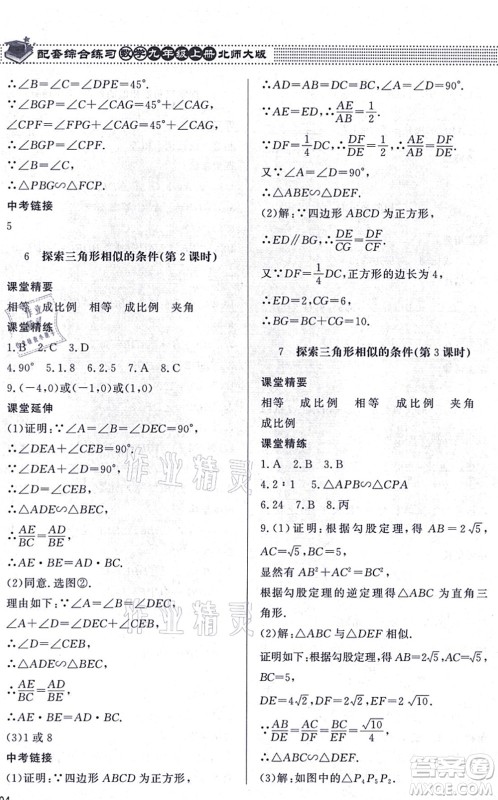 配套综合练习 数学九年级上册 北师大版
∴∠B=∠C=∠DPE=45°.
∵∠BGP=∠C+∠CPG=45°+∠CPG,
∠CPF=∠FPG+∠CAG=45°+∠CAG,
∴∠BGP=∠CPF.
∵∠B=∠C,
∴△PBG∽△FCP.
中考链接
5
6 探索三角形相似的条件(第2课时)
课堂精要
相等 成比例 相等 成比例 夹角
课堂精练
1.B 2.C 3.D
4.90° 5.1.5 6.A 7.A 8.B
9.(-1,0)或(1,0) (-4,0)或(4,0)
课堂延伸
(1)证明:∵∠A=∠B=∠DEC=90°,
∴∠DEA+∠CEB=90°.
∵∠DEA+∠D=90°,
∴∠D=∠CEB.
∴△ADE∽△BEC.
∴AE/BC=AD/BE.
∴AE·BE=AD·BC.
(2)同意.选图②.
理由如下:∵∠A=∠B=∠DEC,
∠A+∠D=∠DEC+∠CEB,
∴∠D=∠CEB.
∴△ADE∽△BEC.
∴AE/BC=AD/BE.
∴AE·BE=AD·BC.
(3)1或8
中考链接
(1)证明:∵四边形ABCD为正方形,
∴AD=AB=DC=BC,∠A=∠D=90°.
∵AE=ED,∴AE/AB=1/2.
∵DF=1/4DC,∴DF/DE=1/2,∴AE/AB=DF/DE.
又∵∠A=∠D,
∴△ABE∽△DEF.
(2)解:∵四边形ABCD为正方形,
∴ED∥BG,∴ED/CG=DF/CF.
又∵DF=1/4DC,正方形的边长为4,
∴ED=2,CG=6,
∴BG=BC+CG=10.
7 探索三角形相似的条件(第3课时)
课堂精要
相等 成比例 相等 成比例 夹角
成比例
课堂精练
1.A 2.B 3.B
4.2∶1 5.△APB∽△CPA
6.24 7.B 8.丙
9.(1)证明:根据勾股定理,得
AB=2√5,AC=√5,BC=5,
显然有AB²+AC²=BC².
根据勾股定理的逆定理得△ABC为直角三
角形.
(2)解:△ABC与△DEF相似.
证明如下:根据勾股定理,得AB=2√5,AC=√5,BC=5,
DE=4√2,DF=2√2,EF=2√10.
∵AB/DE=AC/DF=BC/EF=√10/4,
∴△ABC∽△DEF.
(3)解:如图中的△P₂P₄P₅.